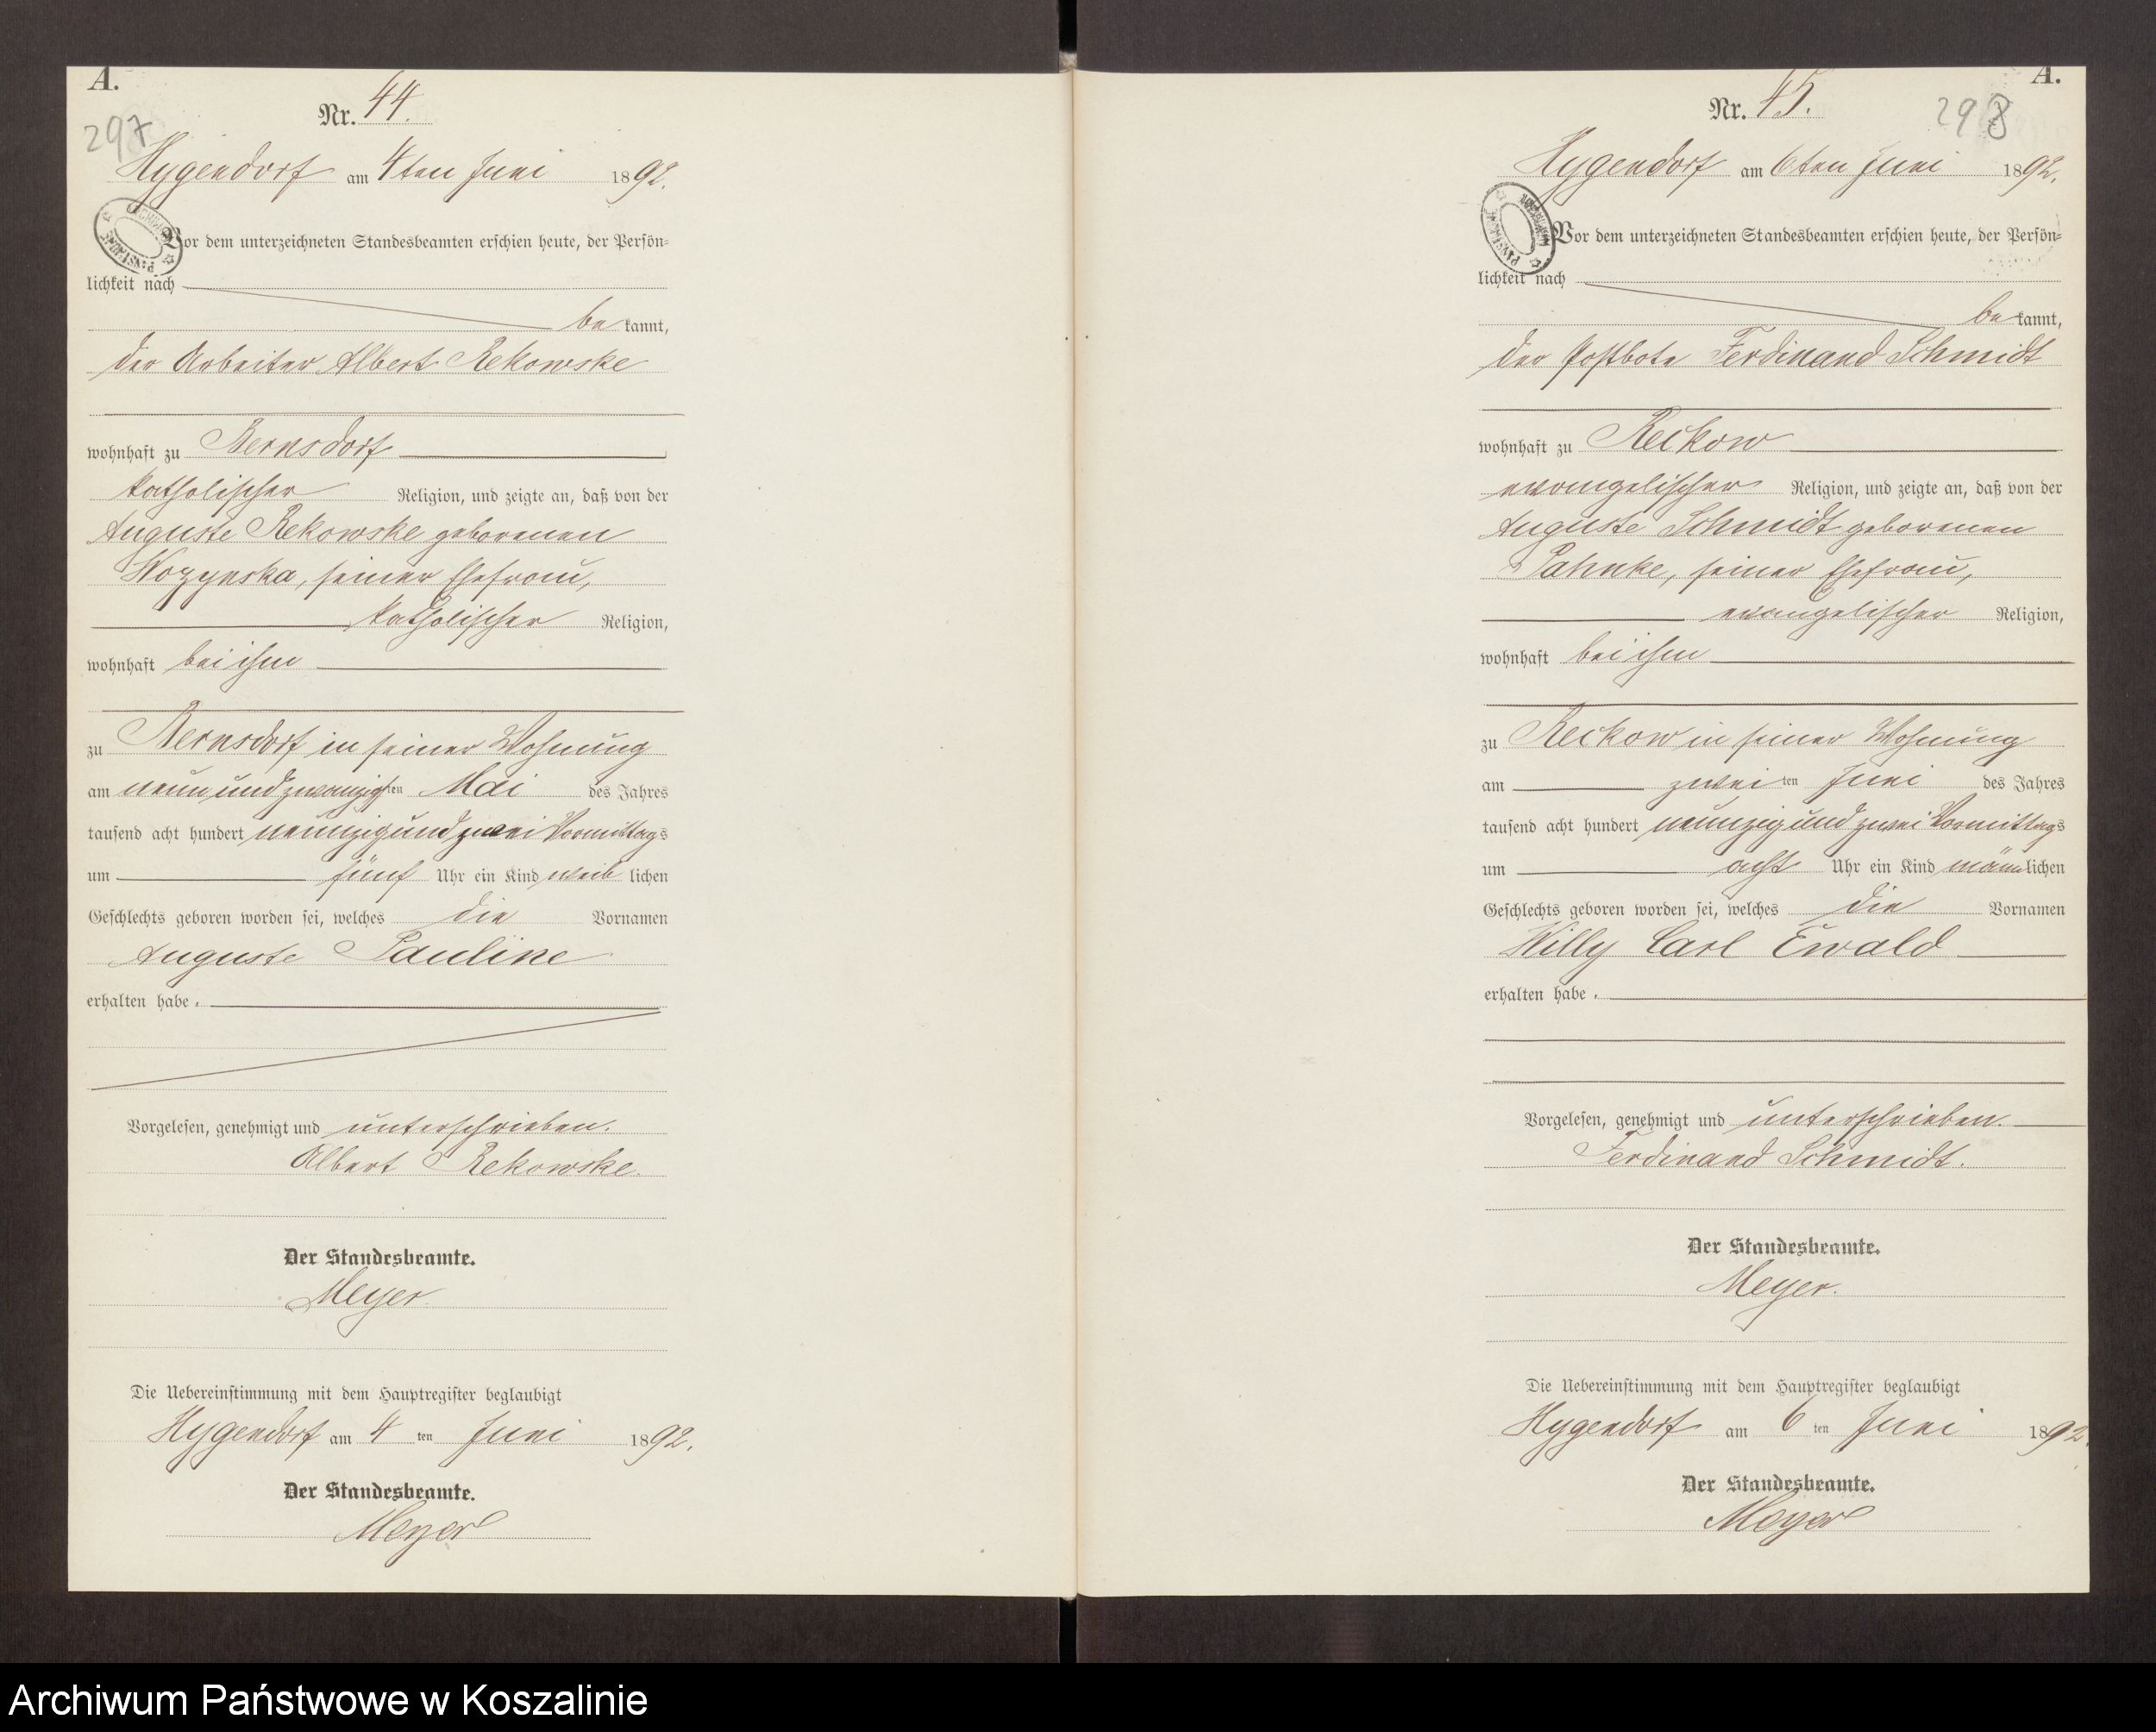 A.
297
Nr. 44.
Hygendorf am 4ten Juni 1892.
Vor dem unterzeichneten Standesbeamten erschien heute, der Persön=
lichkeit nach
be kannt,
der Arbeiter Albert Rekowske
wohnhaft zu Bernsdorf
katholischer Religion, und zeigte an, daß von der
Auguste Rekowske geborenen
Wozynska, seiner Ehefrau,
katholischer Religion,
wohnhaft bei ihm
zu Bernsdorf in seiner Wohnung
am neun und zwanzigsten Mai des Jahres
tausend acht hundert neunzig und zwei Vormittags
um fünf Uhr ein Kind weib lichen
Geschlechts geboren worden sei, welches die Vornamen
Auguste Pauline
erhalten habe.
Vorgelesen, genehmigt und unterschrieben.
Albert Rekowske.
Der Standesbeamte.
Meyer.
Die Uebereinstimmung mit dem Hauptregister beglaubigt
Hygendorf am 4 ten Juni 1892.
Der Standesbeamte.
Meyer
A.
298
Nr. 45.
Hygendorf am 6ten Juni 1892.
Vor dem unterzeichneten Standesbeamten erschien heute, der Persön=
lichkeit nach
be kannt,
der Postbote Ferdinand Schmidt
wohnhaft zu Reckow
evangelischer Religion, und zeigte an, daß von der
Auguste Schmidt geborenen
Pahnke, seiner Ehefrau,
evangelischer Religion,
wohnhaft bei ihm
zu Reckow in seiner Wohnung
am zwei ten Juni des Jahres
tausend acht hundert neunzig und zwei Vormittags
um acht Uhr ein Kind männlichen
Geschlechts geboren worden sei, welches die Vornamen
Willy Carl Ewald
erhalten habe.
Vorgelesen, genehmigt und unterschrieben.
Ferdinand Schmidt.
Der Standesbeamte.
Meyer.
Die Uebereinstimmung mit dem Hauptregister beglaubigt
Hygendorf am 6 ten Juni 1892.
Der Standesbeamte.
Meyer
Archiwum Państwowe w Koszalinie